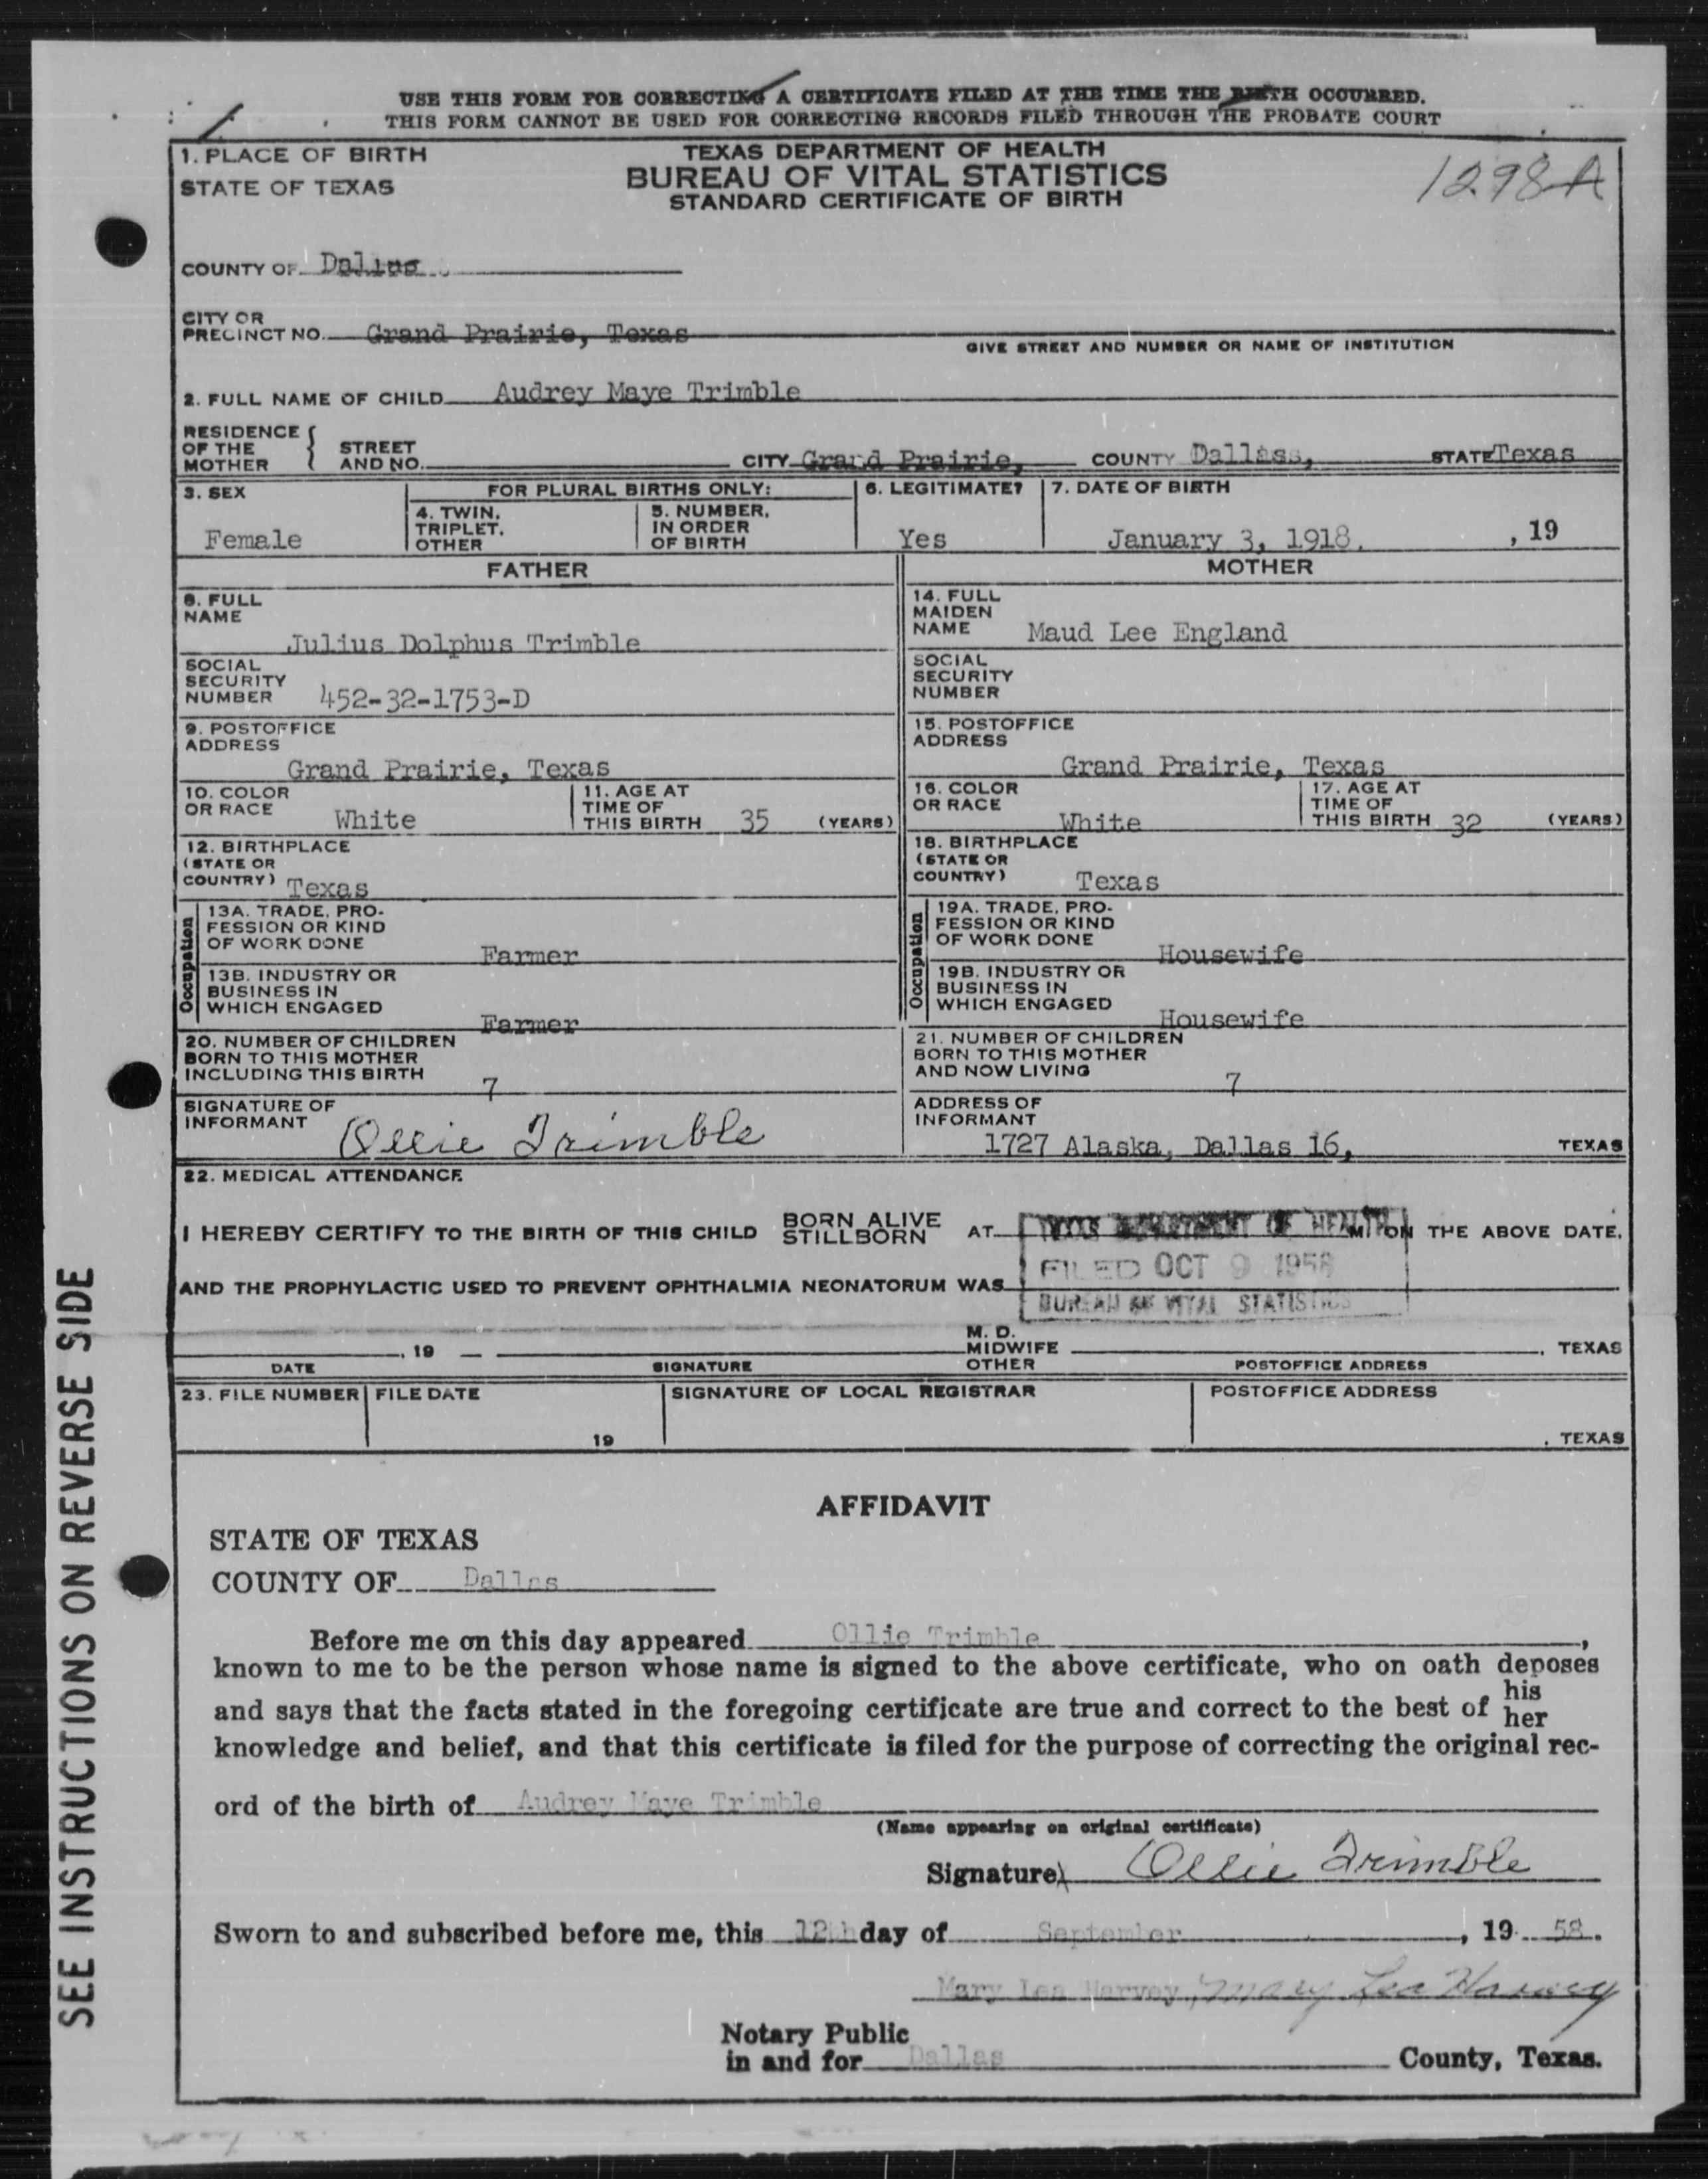 USE THIS FORM FOR CORRECTING A CERTIFICATE FILED AT THE TIME THE BIRTH OCCURRED.
THIS FORM CANNOT BE USED FOR CORRECTING RECORDS FILED THROUGH THE PROBATE COURT
1. PLACE OF BIRTH
STATE OF TEXAS
TEXAS DEPARTMENT OF HEALTH
BUREAU OF VITAL STATISTICS
STANDARD CERTIFICATE OF BIRTH
1298A
COUNTY OF Dallas
CITY OR
PRECINCT NO. Grand Prairie, Texas
GIVE STREET AND NUMBER OR NAME OF INSTITUTION
2. FULL NAME OF CHILD Audrey Maye Trimble
RESIDENCE
OF THE
MOTHER
STREET
AND NO.
CITY Grand Prairie, COUNTY Dallass, STATE Texas
3. SEX
Female
FOR PLURAL BIRTHS ONLY:
4. TWIN,
TRIPLET,
OTHER
5. NUMBER,
IN ORDER
OF BIRTH
6. LEGITIMATE?
Yes
7. DATE OF BIRTH
January 3, 1918. , 19
FATHER
MOTHER
8. FULL
NAME
Julius Dolphus Trimble
14. FULL
MAIDEN
NAME Maud Lee England
SOCIAL
SECURITY
NUMBER 452-32-1753-D
SOCIAL
SECURITY
NUMBER
9. POSTOFFICE
ADDRESS
Grand Prairie, Texas
15. POSTOFFICE
ADDRESS
Grand Prairie, Texas
10. COLOR
OR RACE White
11. AGE AT
TIME OF
THIS BIRTH 35 (YEARS)
16. COLOR
OR RACE White
17. AGE AT
TIME OF
THIS BIRTH 32 (YEARS)
12. BIRTHPLACE
(STATE OR
COUNTRY) Texas
18. BIRTHPLACE
(STATE OR
COUNTRY) Texas
Occupation
13A. TRADE, PRO-
FESSION OR KIND
OF WORK DONE Farmer
13B. INDUSTRY OR
BUSINESS IN
WHICH ENGAGED Farmer
Occupation
19A. TRADE, PRO-
FESSION OR KIND
OF WORK DONE Housewife
19B. INDUSTRY OR
BUSINESS IN
WHICH ENGAGED Housewife
20. NUMBER OF CHILDREN
BORN TO THIS MOTHER
INCLUDING THIS BIRTH 7
21. NUMBER OF CHILDREN
BORN TO THIS MOTHER
AND NOW LIVING 7
SIGNATURE OF
INFORMANT Ollie Trimble
ADDRESS OF
INFORMANT
1727 Alaska, Dallas 16, TEXAS
22. MEDICAL ATTENDANCE
I HEREBY CERTIFY TO THE BIRTH OF THIS CHILD BORN ALIVE
STILLBORN AT M. ON THE ABOVE DATE,
TEXAS DEPARTMENT OF HEALTH
FILED OCT 9 1958
BUREAU OF VITAL STATISTICS
AND THE PROPHYLACTIC USED TO PREVENT OPHTHALMIA NEONATORUM WAS
, 19
M. D.
MIDWIFE
OTHER
, TEXAS
DATE
SIGNATURE
POSTOFFICE ADDRESS
23. FILE NUMBER
FILE DATE
19
SIGNATURE OF LOCAL REGISTRAR
POSTOFFICE ADDRESS
, TEXAS
AFFIDAVIT
STATE OF TEXAS
COUNTY OF Dallas
Before me on this day appeared Ollie Trimble ,
known to me to be the person whose name is signed to the above certificate, who on oath deposes
and says that the facts stated in the foregoing certificate are true and correct to the best of his
her
knowledge and belief, and that this certificate is filed for the purpose of correcting the original rec-
ord of the birth of Audrey Maye Trimble
(Name appearing on original certificate)
Signature Ollie Trimble
Sworn to and subscribed before me, this 12th day of September , 19 58.
Mary Lea Harvey, Mary Lea Harvey
Notary Public
in and for Dallas County, Texas.
SEE INSTRUCTIONS ON REVERSE SIDE